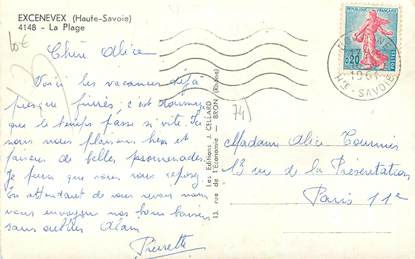 EXCENEVEX (Haute-Savoie)
4148 - La Plage
10€
Chère Alice
Voici les vacances déjà
presque finies, c'est dommage
que le temps passe si vite. Ici
nous nous plaisons bien et
faisons de belles promenades
Je pense que vous vous reposez
En attendant de vous revoir nous
vous envoyons nos bons baisers
sans oublier Alain
Pierrette
74)
Les Editions J. CELLARD
13, rue de l'Economie - BRON (Rhône)
REPUBLIQUE FRANÇAISE
0,20
POSTES
1961
Hte SAVOIE
Madame Alice
13 rue de la Présentation
Paris 11e